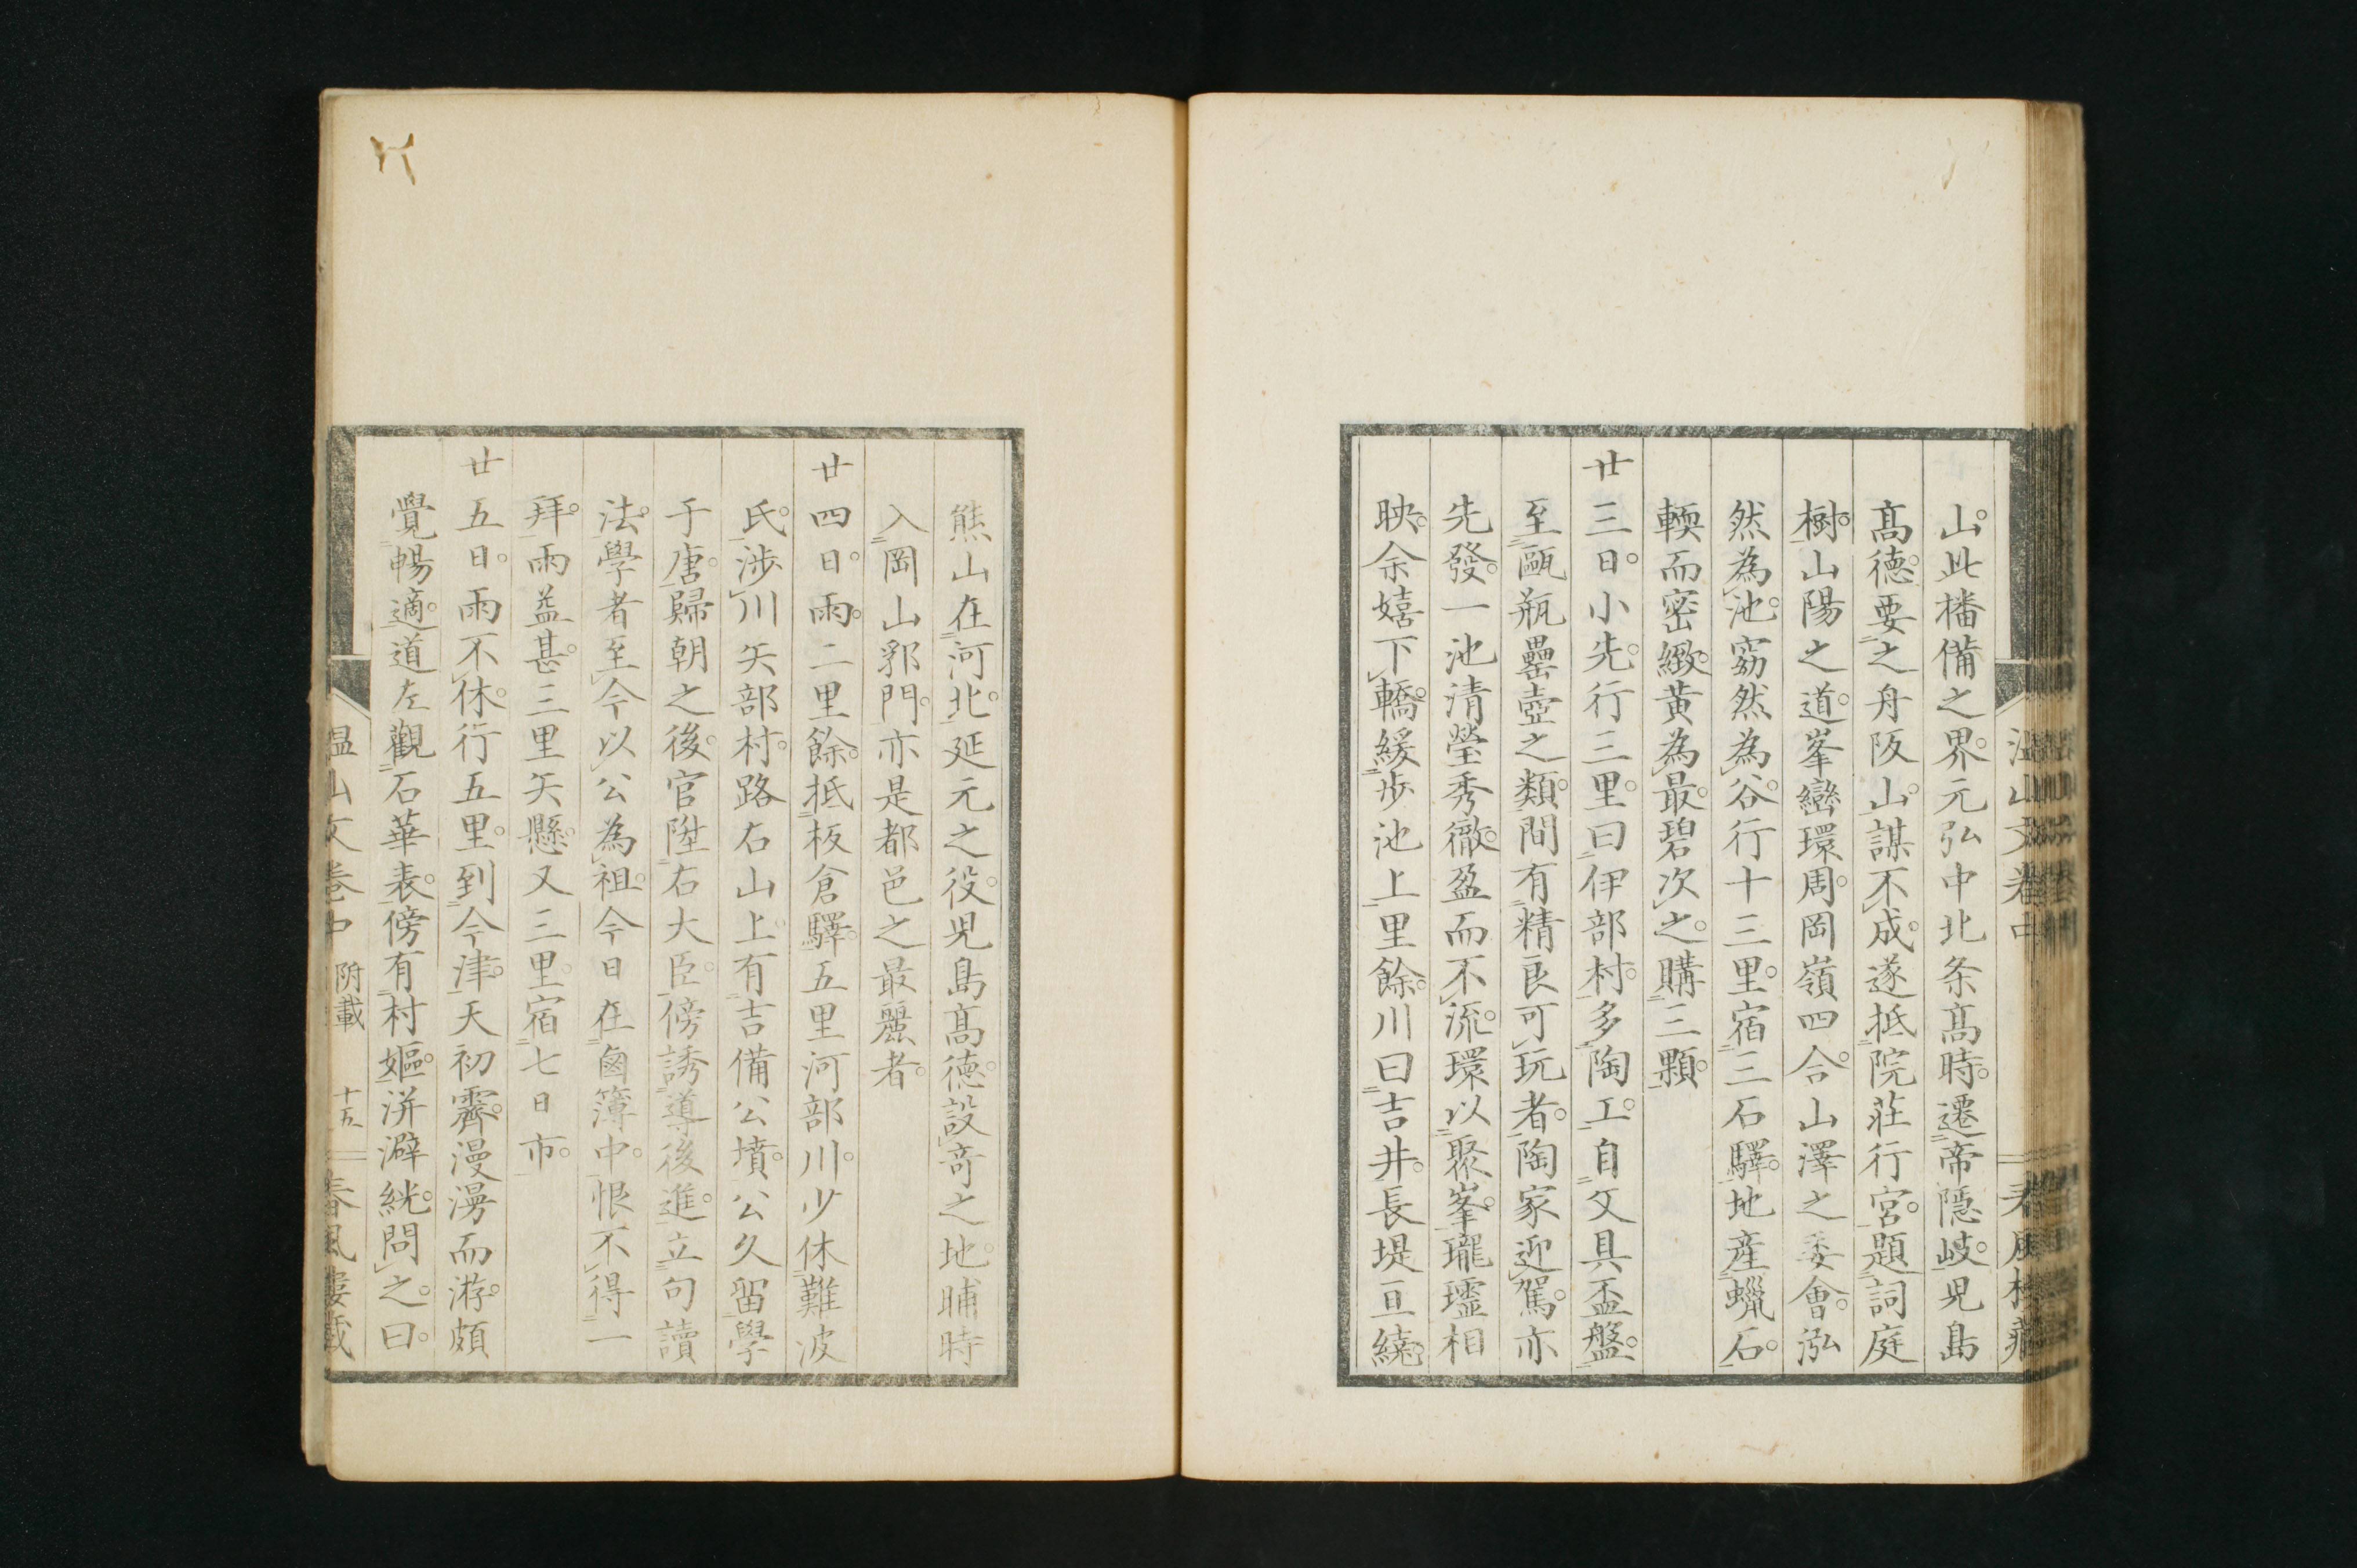 山此播備之界元弘中北条髙時遷帝隱岐児島
髙德要之舟阪山謀不成遂抵院荘行宮題詞庭
樹山陽之道峯巒環周岡嶺四合山澤之委會泓
然為池窈然為谷行十三里宿三石驛地産蠟石
輭而密緻黄為最碧次之購三顆
廿三日小先行三里曰伊部村多陶工自文具盃盤
至甌瓶罍壺之類間有精良可玩者陶家迎駕亦
先發一池清瑩秀徹盈而不流環以聚峯瓏璁相
映余嬉下轎緩步池上里餘川曰吉井長堤亘繞
熊山在河北延元之役児島髙德設竒之地晡時
入岡山郛門亦是都邑之最麗者
廿四日雨二里餘抵板倉驛五里河部川少休難波
氏涉川矢部村路右山上有吉備公墳公久留學
于唐歸朝之後官陞右大臣傍誘導後進立句讀
法學者至今以公為祖今日在鹵簿中恨不得一
拜雨益甚三里矢懸又三里宿七日市
廿五日雨不休行五里到今津天初霽漫漫而游頗
覺暢適道左觀石華表傍有村嫗洴澼絖問之曰
温山文卷中 附載 十五 春風樓藏